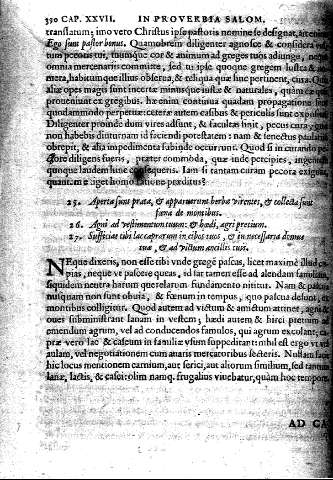 390 CAP. XXVII. IN PROVERBIA SALOM.
translatum; imo vero Christus ipse pastoris nomine se designat,
Ego sum pastor bonus. Quamobrem diligenter agnosce & considera
tum pecoris tui, tuumque cor & animum ad greges tuos adiunge,
omnia mercenariis committe, sed tu ipse quoque gregem lustra &
mera, habitumque illius observa, & reliqua quæ huc pertinent, cura.
alię opes magis sunt incertæ minusque iustæ & naturales, quàm
proveniunt ex gregibus. hæ enim continua quadam propagatione
quodammodo perpetuæ: ceteræ autem casibus & periculis sunt
Diligenter proinde dum vires adsunt, & facultas sinit, pecus cura,
non habebis diuturnam id faciendi potestatem: nam & senectus
obrepit, & alia impedimenta subinde occurrunt. Quòd si in curando
diligens fueris, præter commoda, quæ inde percipies,
quoque laudem hinc Iam si tantam curam pecora
quantam exiget homo ratione præditus?
25. Aperta sunt prata, & apparuerunt herbæ virentes, & collecta sunt
fœna de montibus.
26. Agni ad vestimentum tuum: & hædi, agri pretium.
27. Sufficiat tibi lac caprarum in cibos tuos, & in necessaria domus
tuæ, & ad victum ancillis tuis.
NEque dixeris, non esse tibi vnde gregẽ pascas, licet maximè illud
pias, neque vt pascere queas, id satis tamen esse ad alendam familiam,
siquidem neutra harum querelarum fundamento nititur. Nam & pascua
nusquam non sunt obvia, & fœnum in tempus, quo pascua desunt,
montibus colligitur. Quod autem ad victum & amictum attinet, agni
oues subministrant lanam in vestem; hædi autem & hirci pretium
emendum agrum, vel ad conducendos famulos, qui agrum excolant;
præ vero lac & caseum in familiæ vsum suppeditant: nihil est ergo vt
aulam, vel negotiationem cum auaris mercatoribus secteris. Nullam
hic locus mentionem carnium, aut serici, aut aliorum similium, sed tantùm
lanæ, lactis, & casei: olim namq. frugalius viuebatur, quàm hoc
AD CA